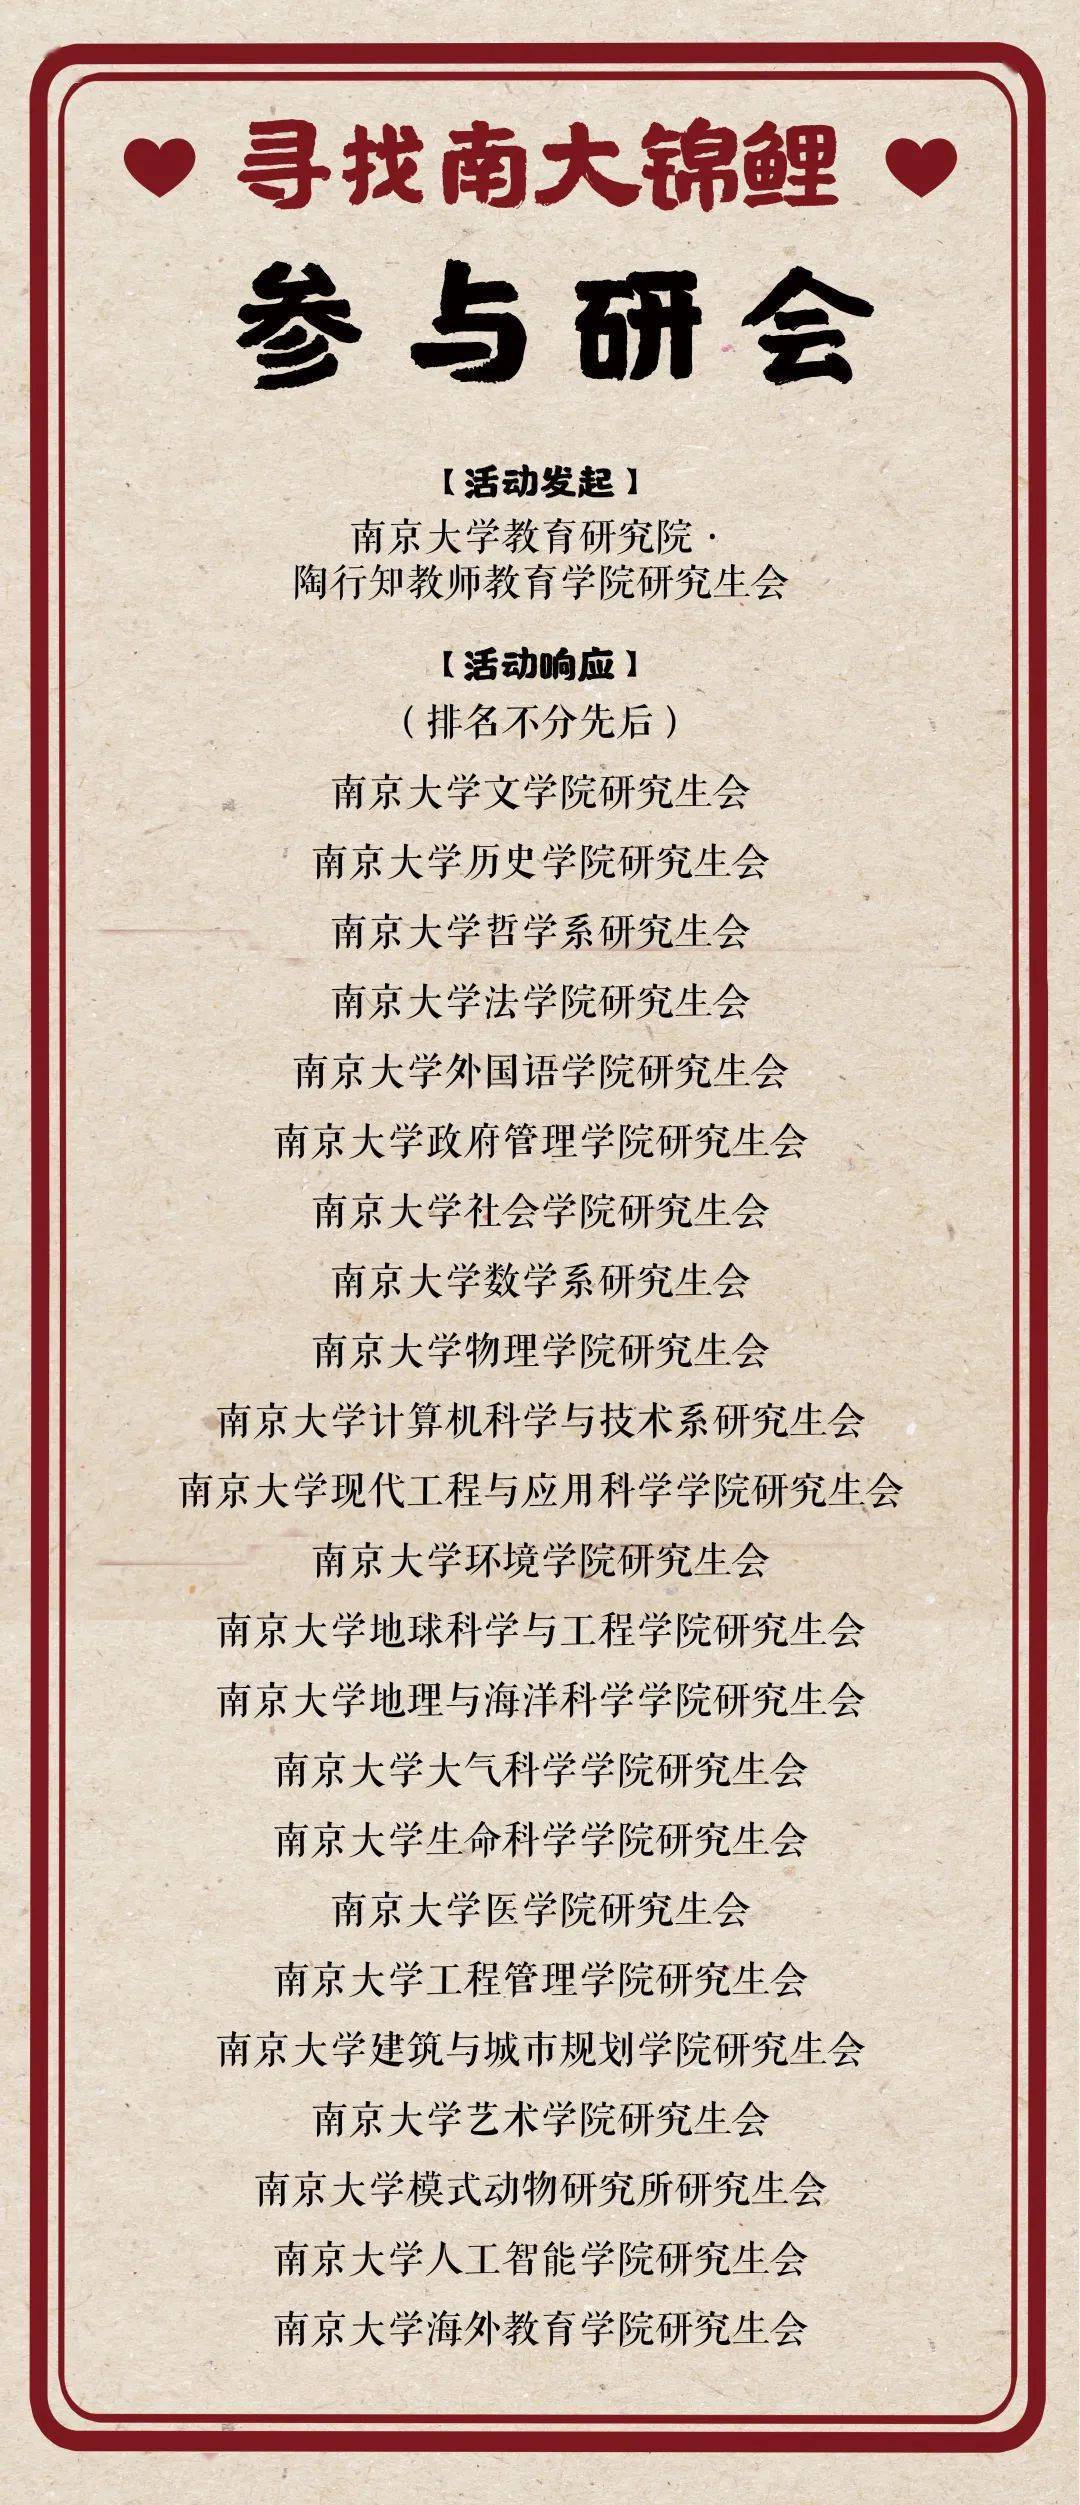 寻找南大锦鲤
参与研会
【活动发起】
南京大学教育研究院·
陶行知教师教育学院研究生会
【活动响应】
（排名不分先后）
南京大学文学院研究生会
南京大学历史学院研究生会
南京大学哲学系研究生会
南京大学法学院研究生会
南京大学外国语学院研究生会
南京大学政府管理学院研究生会
南京大学社会学院研究生会
南京大学数学系研究生会
南京大学物理学院研究生会
南京大学计算机科学与技术系研究生会
南京大学现代工程与应用科学学院研究生会
南京大学环境学院研究生会
南京大学地球科学与工程学院研究生会
南京大学地理与海洋科学学院研究生会
南京大学大气科学学院研究生会
南京大学生命科学学院研究生会
南京大学医学院研究生会
南京大学工程管理学院研究生会
南京大学建筑与城市规划学院研究生会
南京大学艺术学院研究生会
南京大学模式动物研究所研究生会
南京大学人工智能学院研究生会
南京大学海外教育学院研究生会